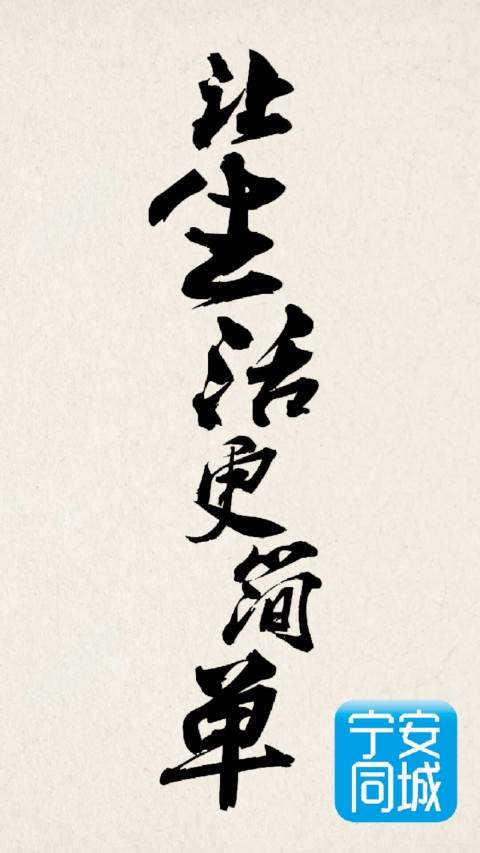 让生活更简单
宁安
同城